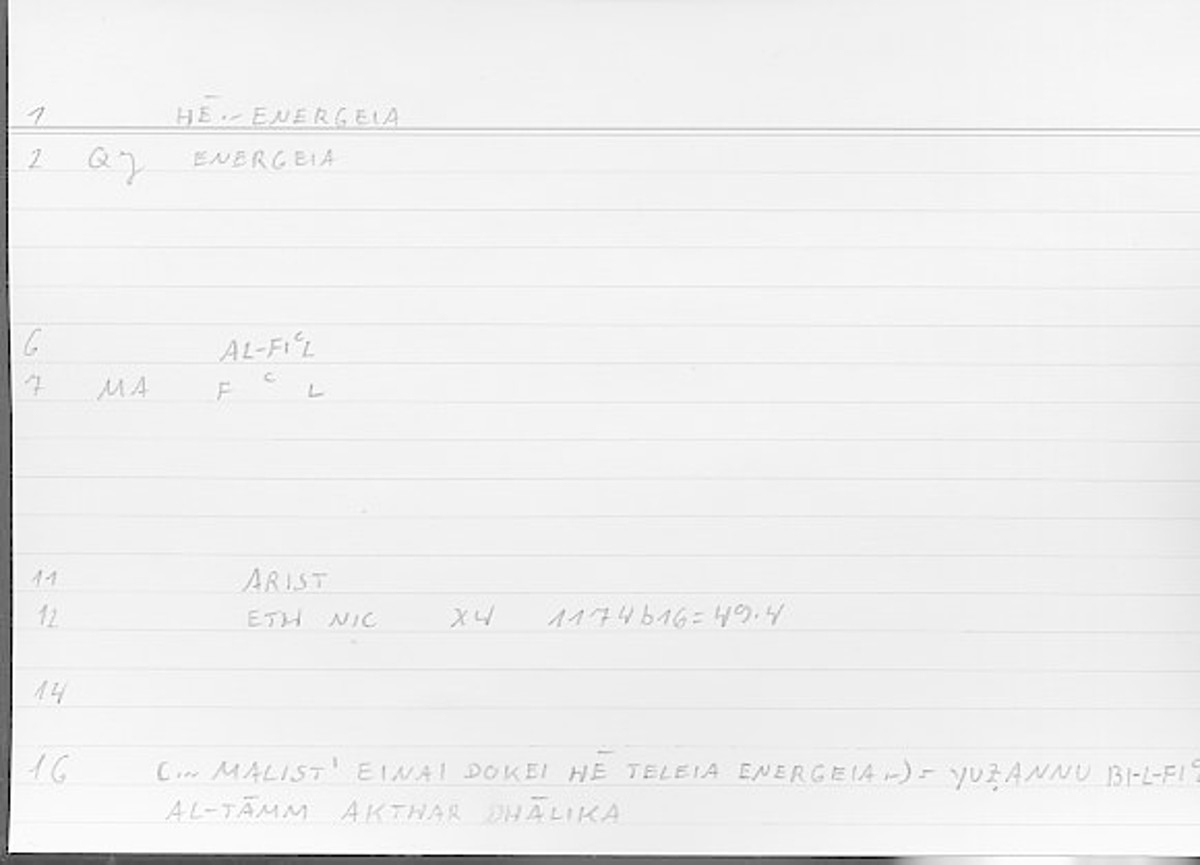 1 HĒ.~ENERGEIA
2 Qγ ENERGEIA
6 AL-FIᶜL
7 MA F ᶜ L
11 ARIST
12 ETH NIC X4 1174b16=49.4
14
16 (... MALIST' EINAI DOKEI HĒ TELEIA ENERGEIA...) = YUẒANNU BI-L-FIᶜ
AL-TĀMM AKTHAR DHĀLIKA